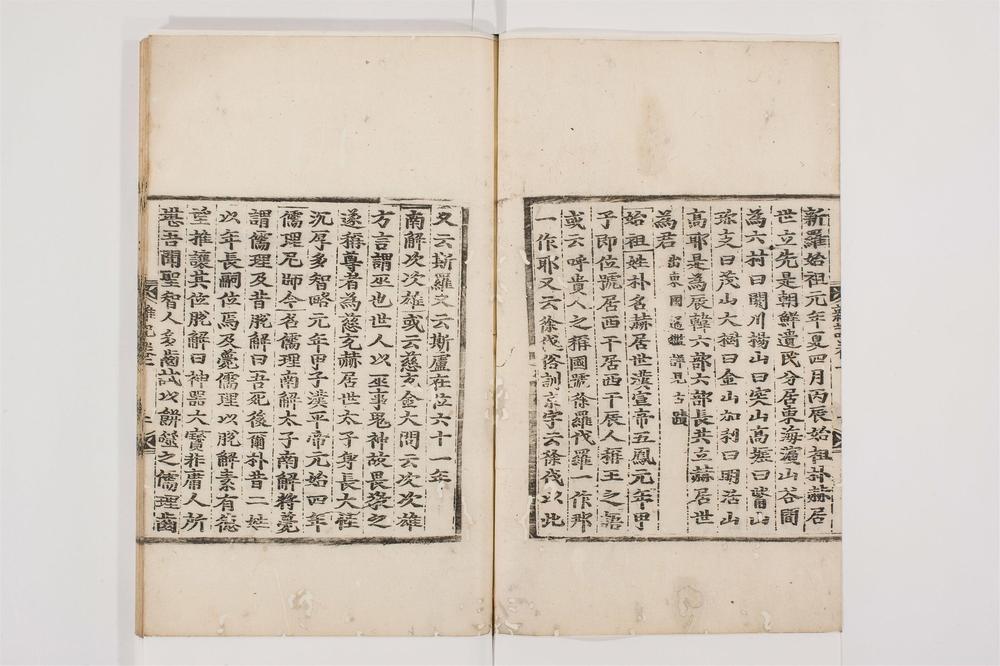 新羅始祖元年夏四月丙辰始祖朴赫居
世立先是朝鮮遺民分居東海濵山谷間
為六村曰閼川楊山曰突山高墟曰觜山
珎支曰茂山大樹曰金山加利曰明活山
高耶是為辰韓六部六部長共立赫居世
為君 出東國通鑑詳見古蹟
始祖姓朴名赫居世漢宣帝五鳳元年甲
子即位號居西干居西干辰人稱王之語
或云呼貴人之稱國號徐羅伐羅一作那
一作耶又云徐伐俗訓京字云徐伐以此
又云斯羅又云斯盧在位六十一年
南解次次雄或云慈充金大問云次次雄
方言謂巫也世人以巫事鬼神故畏敬之
遂稱尊者為慈充赫居世太子身長大性
沉厚多智略元年甲子漢平帝元始四年
儒理尼師今名儒理南解太子南解將薨
謂儒理及昔脫解曰吾死後爾朴昔二姓
以年長嗣位焉及薨儒理以脫解素有德
望推讓其位脫解曰神器大寶非庸人所
堪吾聞聖智人多齒試以餅噬之儒理齒